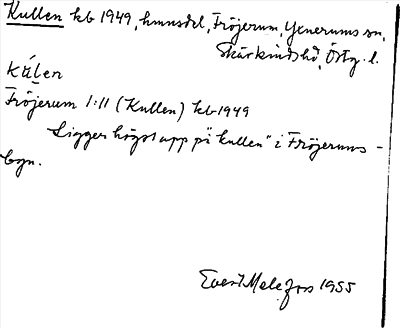 Kullen kb 1949, hmnsdel, Fröjerum, Yxnerums sn,
Skärkinds hd, Östg. l.
Kúlen
Fröjerum 1:11 (Kullen) kb 1949
Ligger högst upp på "kullen" i Fröjerums-
byn.
Evert Melefors 1955